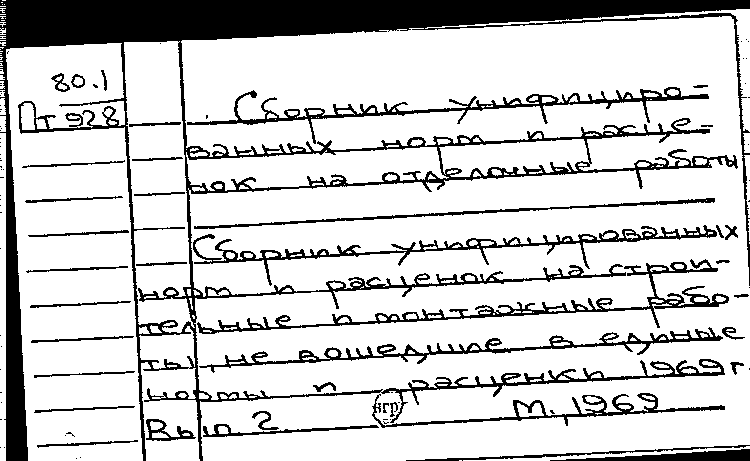 80.1
Пт 928
Сборник унифициро-
ванных норм и расце-
нок на отделочные работы
Сборник унифицированных
норм и расценок на строи-
тельные и монтажные рабо-
ты, не вошедшие в единые
нормы и расценки 1969 г.
Вып 2. М., 1969